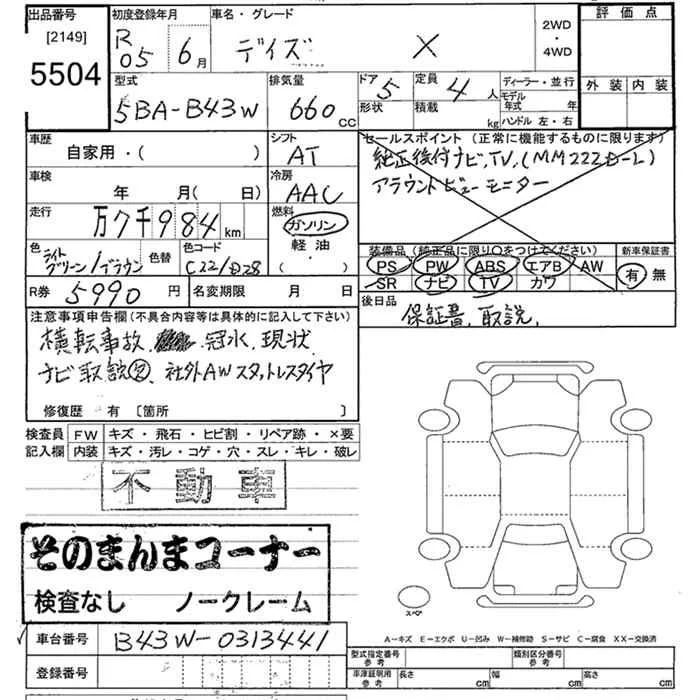 出品番号
[2149]
5504
初度登録年月
R 05 6 月
車名・グレード
デイズ X
2WD
・
4WD
評価点
外装 内装
型式
5BA-B43W
排気量
660 CC
ドア 5
形状
定員 4 人
積載 kg
ディーラー・並行
モデル
年式 年
ハンドル 左・右
車歴
自家用・( )
シフト
AT
車検
年 月(日)
冷房
AAC
走行
万7千984 km
燃料
ガソリン
軽油
( )
色 ライトグリーン/ブラウン
色替
色コード
C221/D28
R券 5990 円
名変期限 月 日
セールスポイント(正常に機能するものに限ります)
純正後付ナビ,TV,(MM222D-L)
アラウンドビューモニター
装備品(純正品に限り○をつけてください)
PS PW ABS エアB AW
SR ナビ TV カワ
新車保証書
有 無
後日品
保証書, 取説,
注意事項申告欄(不具合内容等は具体的に記入して下さい)
横転事故, 冠水, 現状
ナビ取説, 社外AWスタットレスタイヤ
修復歴 有 [箇所 ]
検査員
記入欄
FW キズ・飛石・ヒビ割・リペア跡・×要
内装 キズ・汚レ・コゲ・穴・スレ・キレ・破レ
不動車
そのまんまコーナー
検査なし ノークレーム
スペア
A-キズ E-エクボ U-凹み W-補修跡 S-サビ C-腐食 XX-交換済
車台番号 B43W-0313441
登録番号
型式指定番号
参考
類別区分番号
参考
車庫証明用
参考
長さ cm 幅 cm 高さ cm